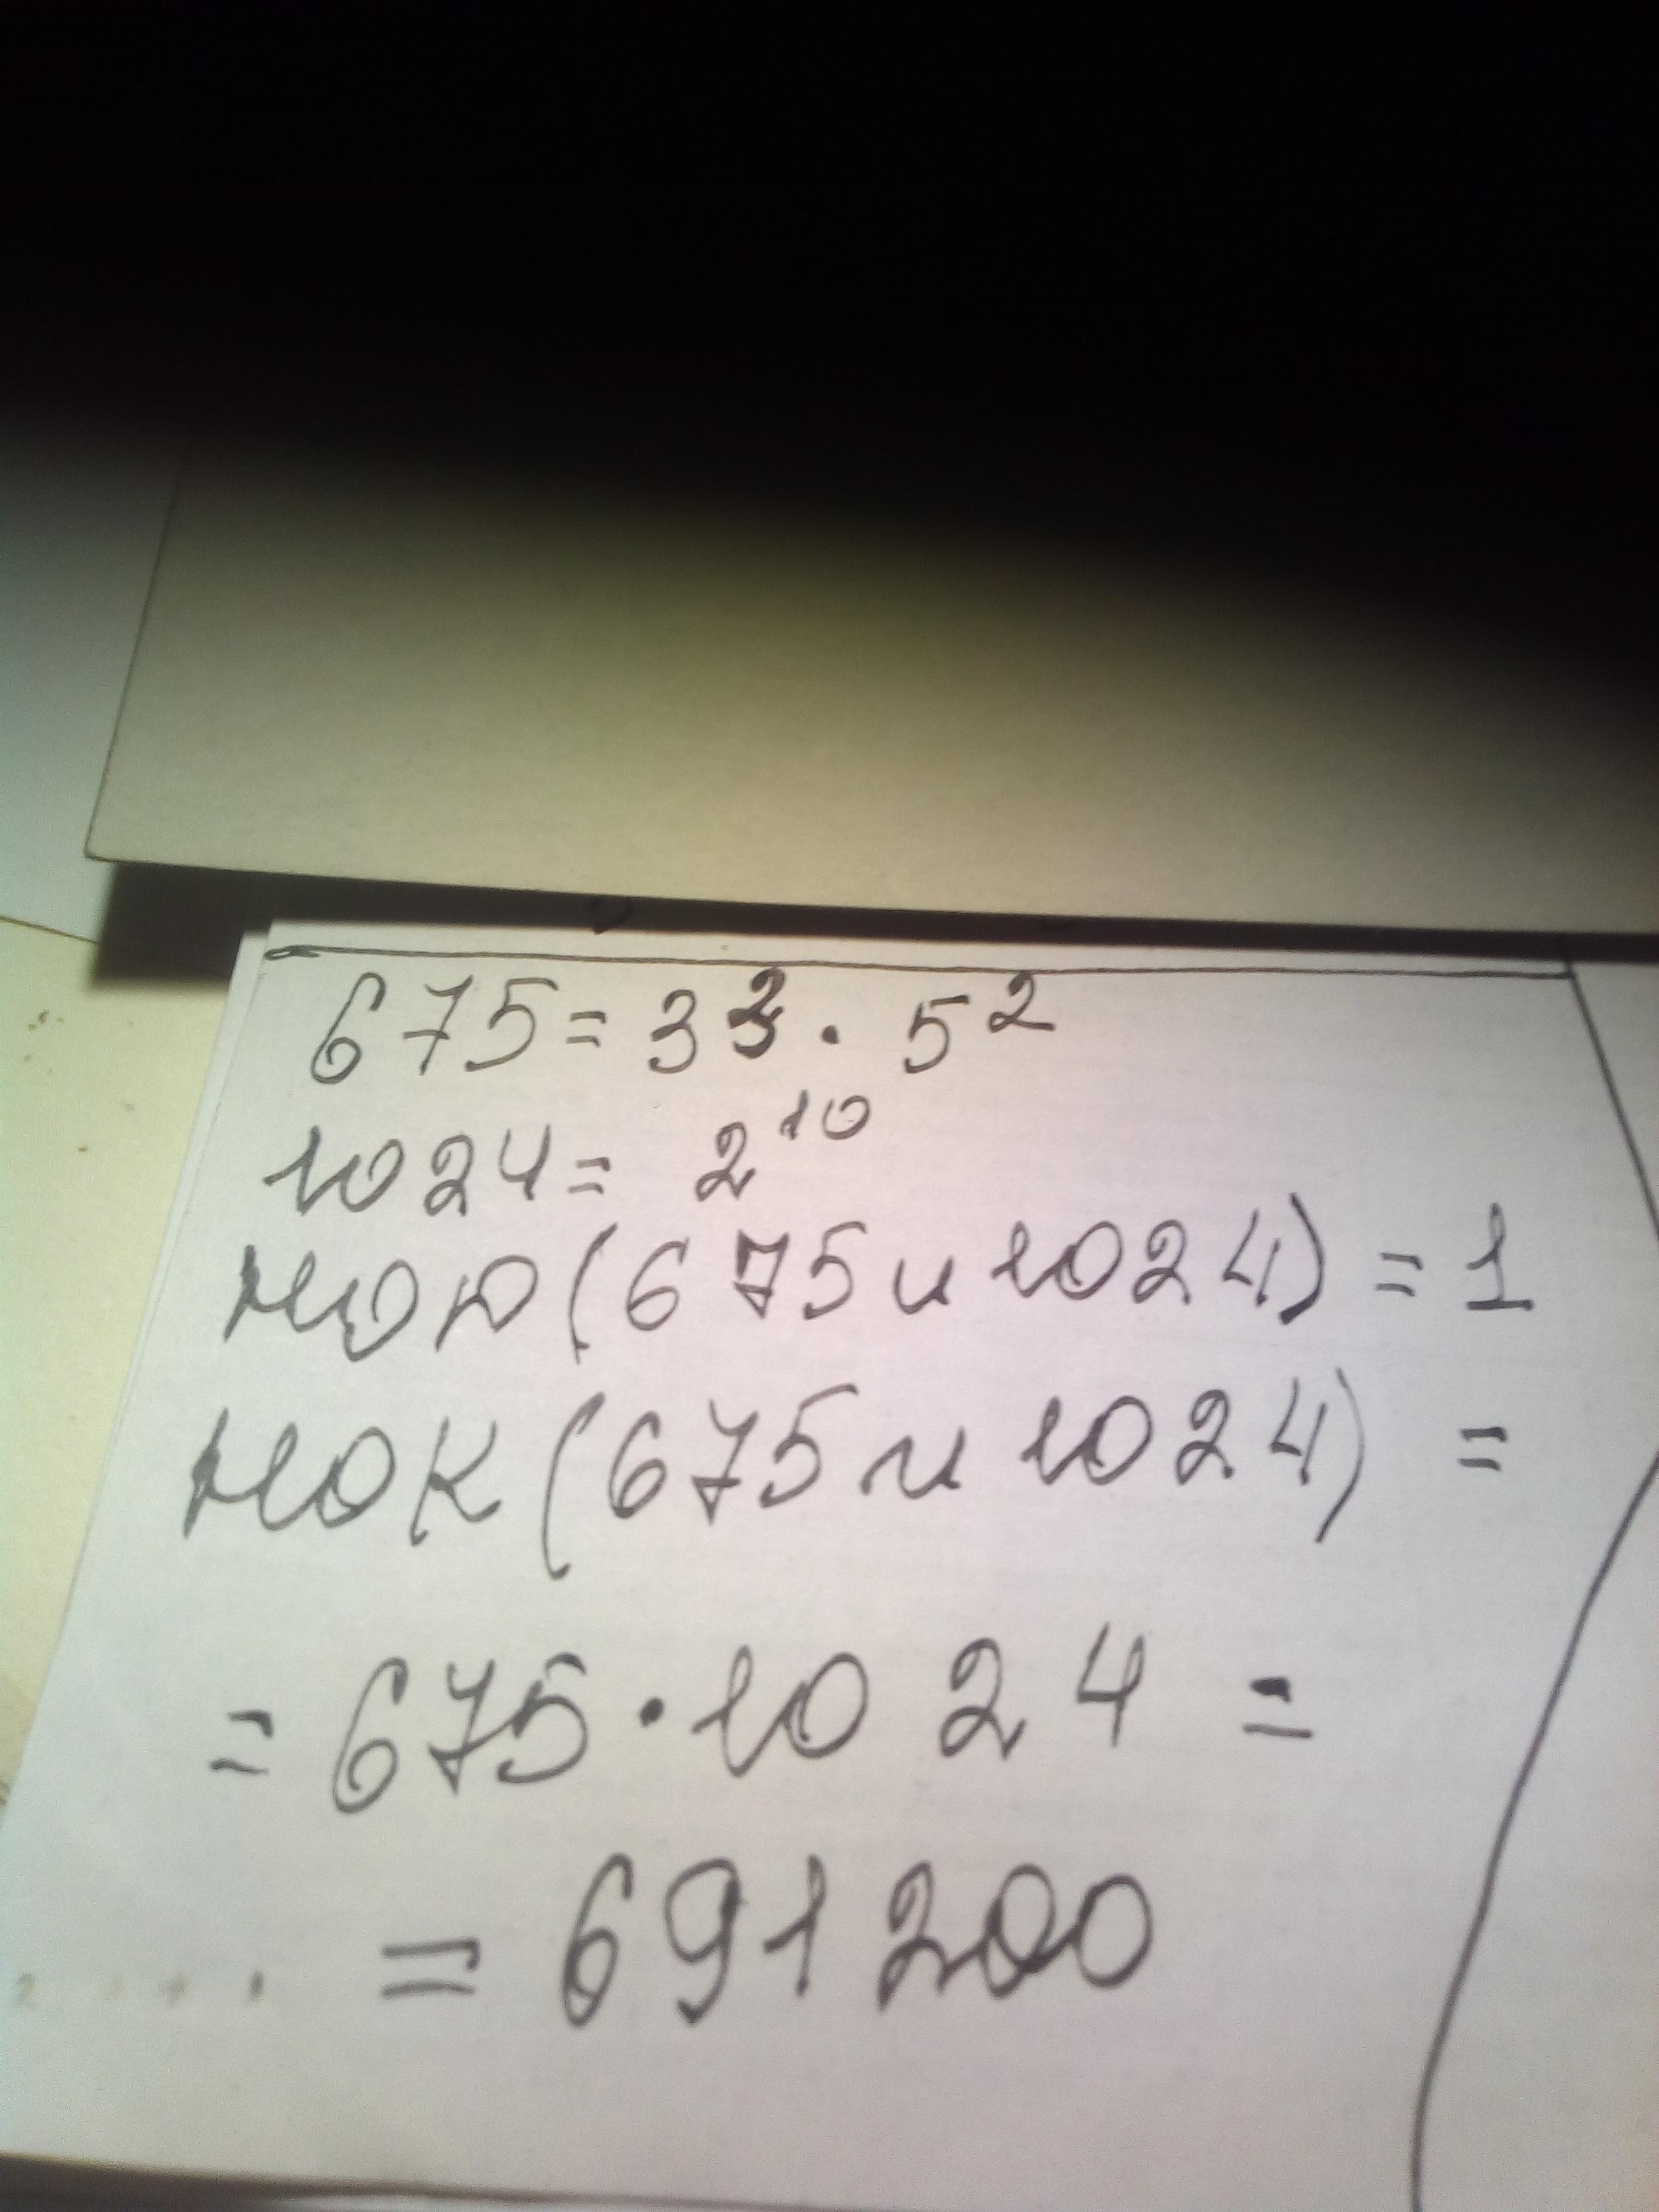 675 = 3³ · 5²
1024 = 2¹⁰
НОД (675 и 1024) = 1
НОК (675 и 1024) =
= 675 · 1024 =
= 691200